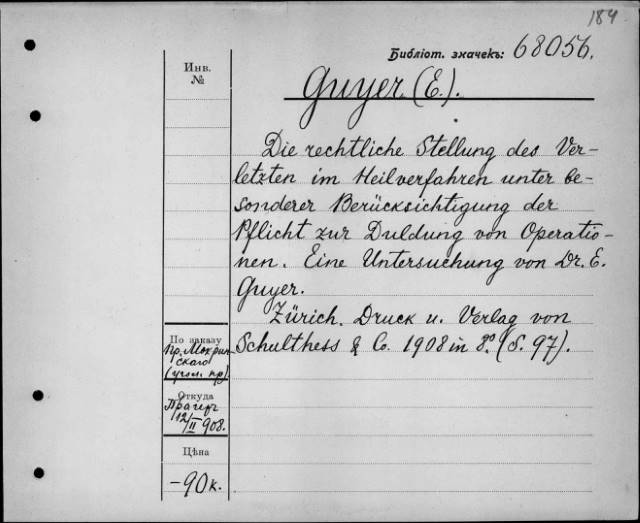 184
Библіот. значекъ: 68056.
Инв.
№
Guyer (E.).
Die rechtliche Stellung des Ver-
letzten im Heilverfahren unter be-
sonderer Berücksichtigung der
Pflicht zur Duldung von Operatio-
nen. Eine Untersuchung von Dr. E.
Guyer.
Zürich. Druck u. Verlag von
Schulthess & Co. 1908 in 8º. (S. 97).
По заказу
Пр. Мокрин-
скаго
Откуда
12/II 908.
Цѣна
-90к.